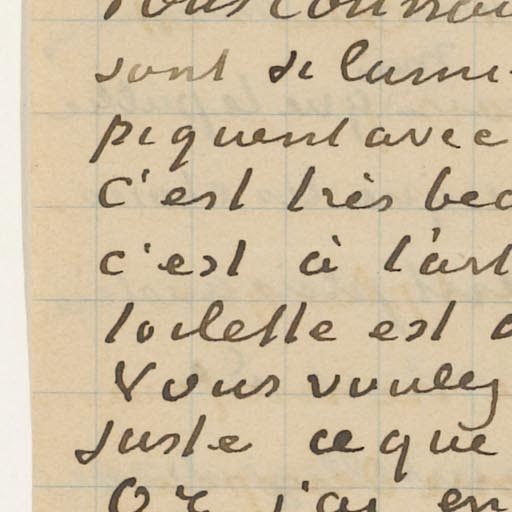 sont si lumi
piquent avec
C'est très bea
c'est à l'art
toilette est
Vous voulez
juste ce que
Or j'ai en